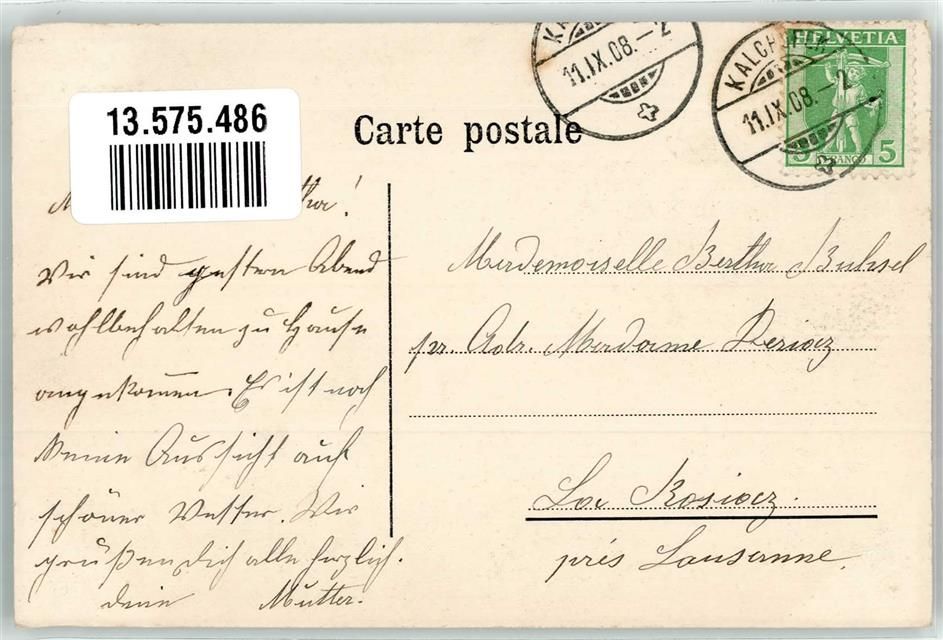 13.575.486
Carte postale
KALCH
11.IX.08.-2
KALCH
11.IX.08.-2
HELVETIA
FRANCO
5
M tha!
Wir sind gestern Abend
wohlbehalten zu Hause
angekommen. Es ist noch
keine Aussicht auf
schöner Wetter. Wir
grüßen Dich alle herzlich.
deine Mutter.
Mademoiselle Bertha
pr. Adr. Madame Deriaz
La Rosiaz.
prés Lausanne.